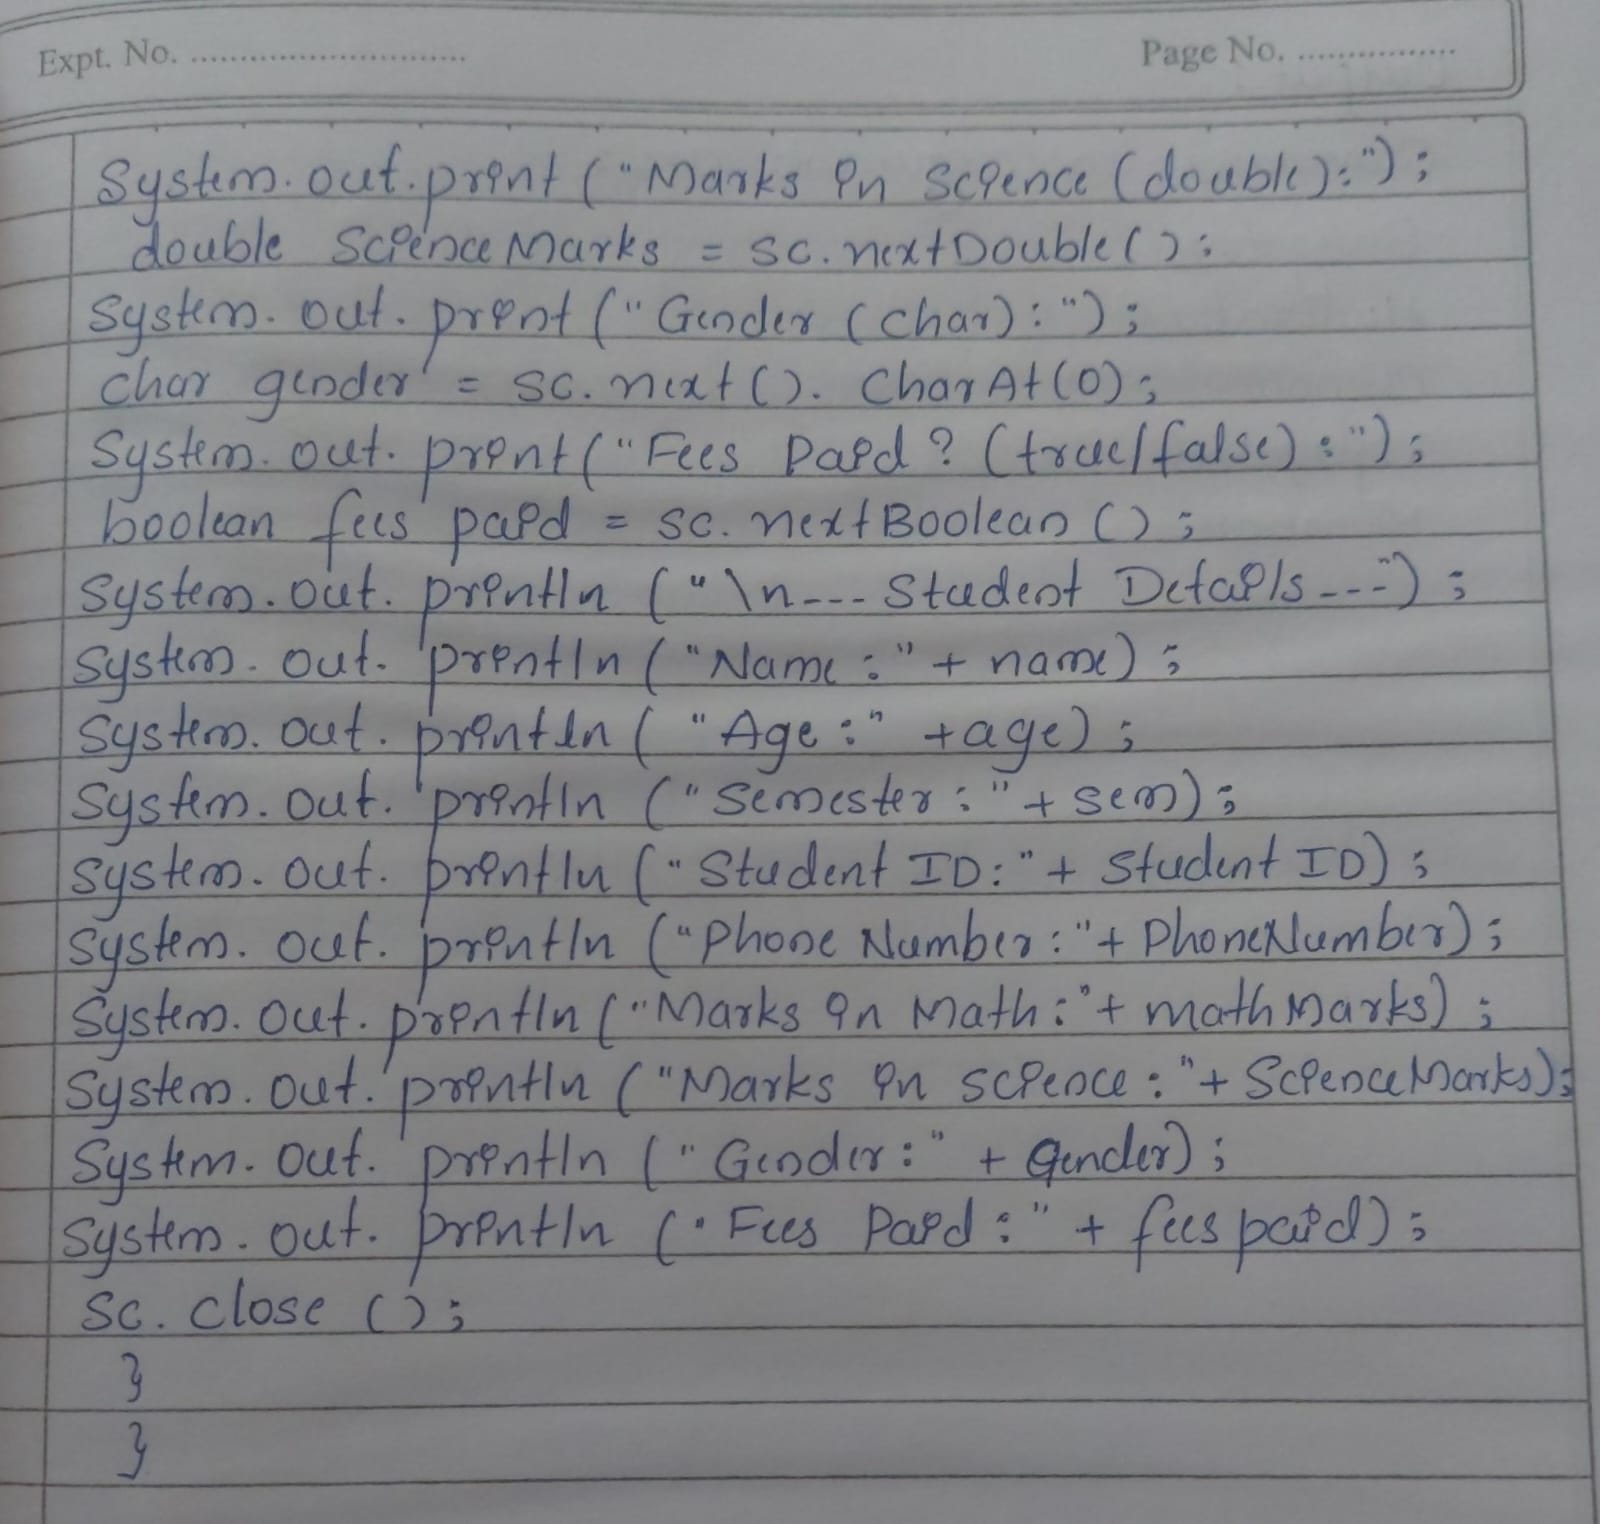 Expt. No. ............................
Page No. ................
System.out.print ("Marks in Science (double):");
double ScienceMarks = sc.nextDouble();
System.out.print ("Gender (char):");
char gender = sc.next().CharAt(0);
System.out.print ("Fees Paid? (true/false):");
boolean fees paid = sc.nextBoolean();
System.out.println ("\n--- Student Details ---");
System.out.println ("Name:" + name);
System.out.println ("Age:" +age);
System.out.println ("Semester:" + sem);
System.out.println ("Student ID:" + Student ID);
System.out.println ("Phone Number:" + PhoneNumber);
System.out.println ("Marks in Math:" + mathMarks);
System.out.println ("Marks in science:" + ScienceMarks);
System.out.println ("Gender:" + Gender);
System.out.println ("Fees Paid:" + fees paid);
SC. Close ();
}
}